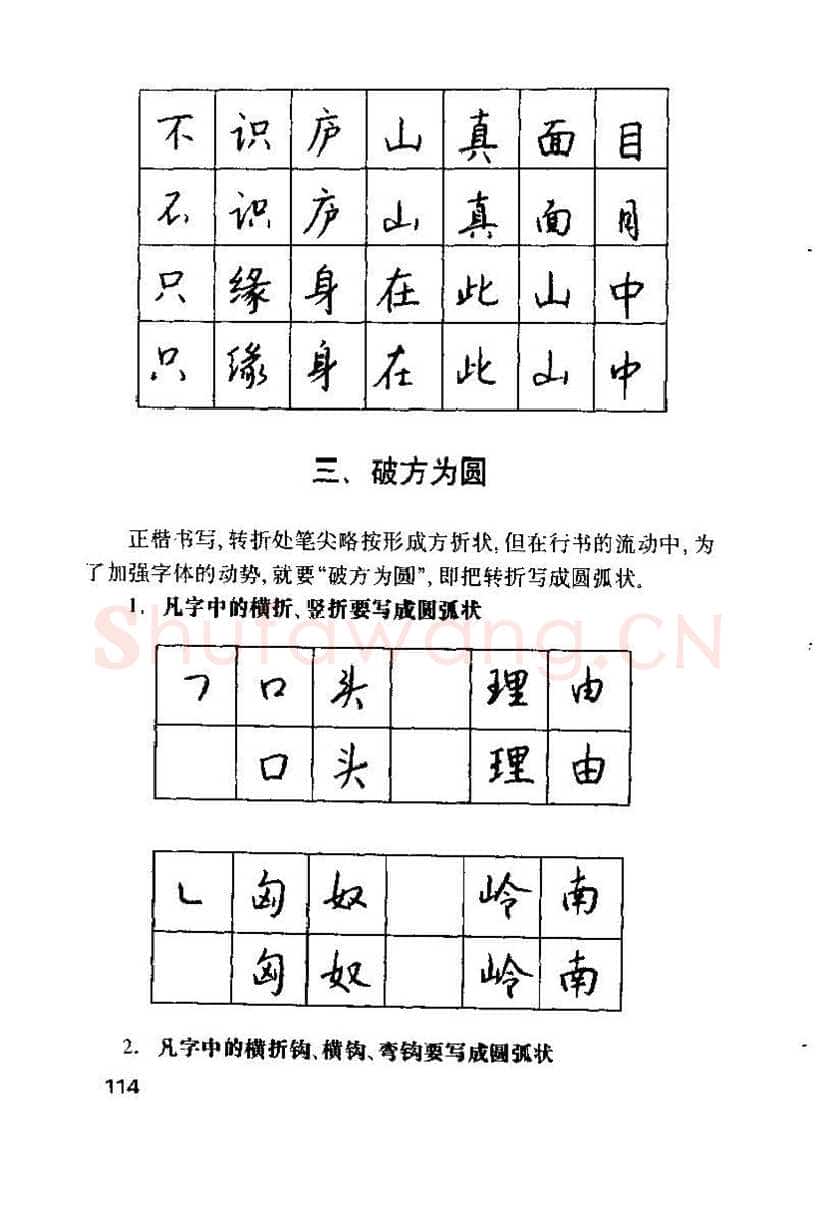 不识庐山真面目
不识庐山真面目
只缘身在此山中
只缘身在此山中
三、破方为圆
正楷书写,转折处笔尖略按形成方折状,但在行书的流动中,为
了加强字体的动势,就要“破方为圆”,即把转折写成圆弧状。
1. 凡字中的横折、竖折要写成圆弧状
Shufawang.CN
㇕ 口 头 理 由
口 头 理 由
㇄ 匈 奴 岭 南
匈 奴 岭 南
2. 凡字中的横折钩、横钩、弯钩要写成圆弧状
114